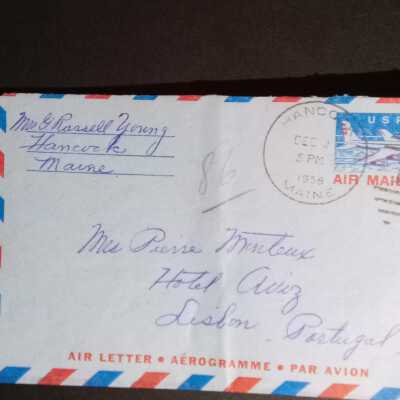 Mrs G Russell Young
Hancock
Maine.
86
HANCO
DEC 3
5 PM
1956
MAINE
U S P
AIR MAI
Mrs Pierre Monteux
Hotel Aviz
Lisbon, Portugal
AIR LETTER • AÉROGRAMME • PAR AVION